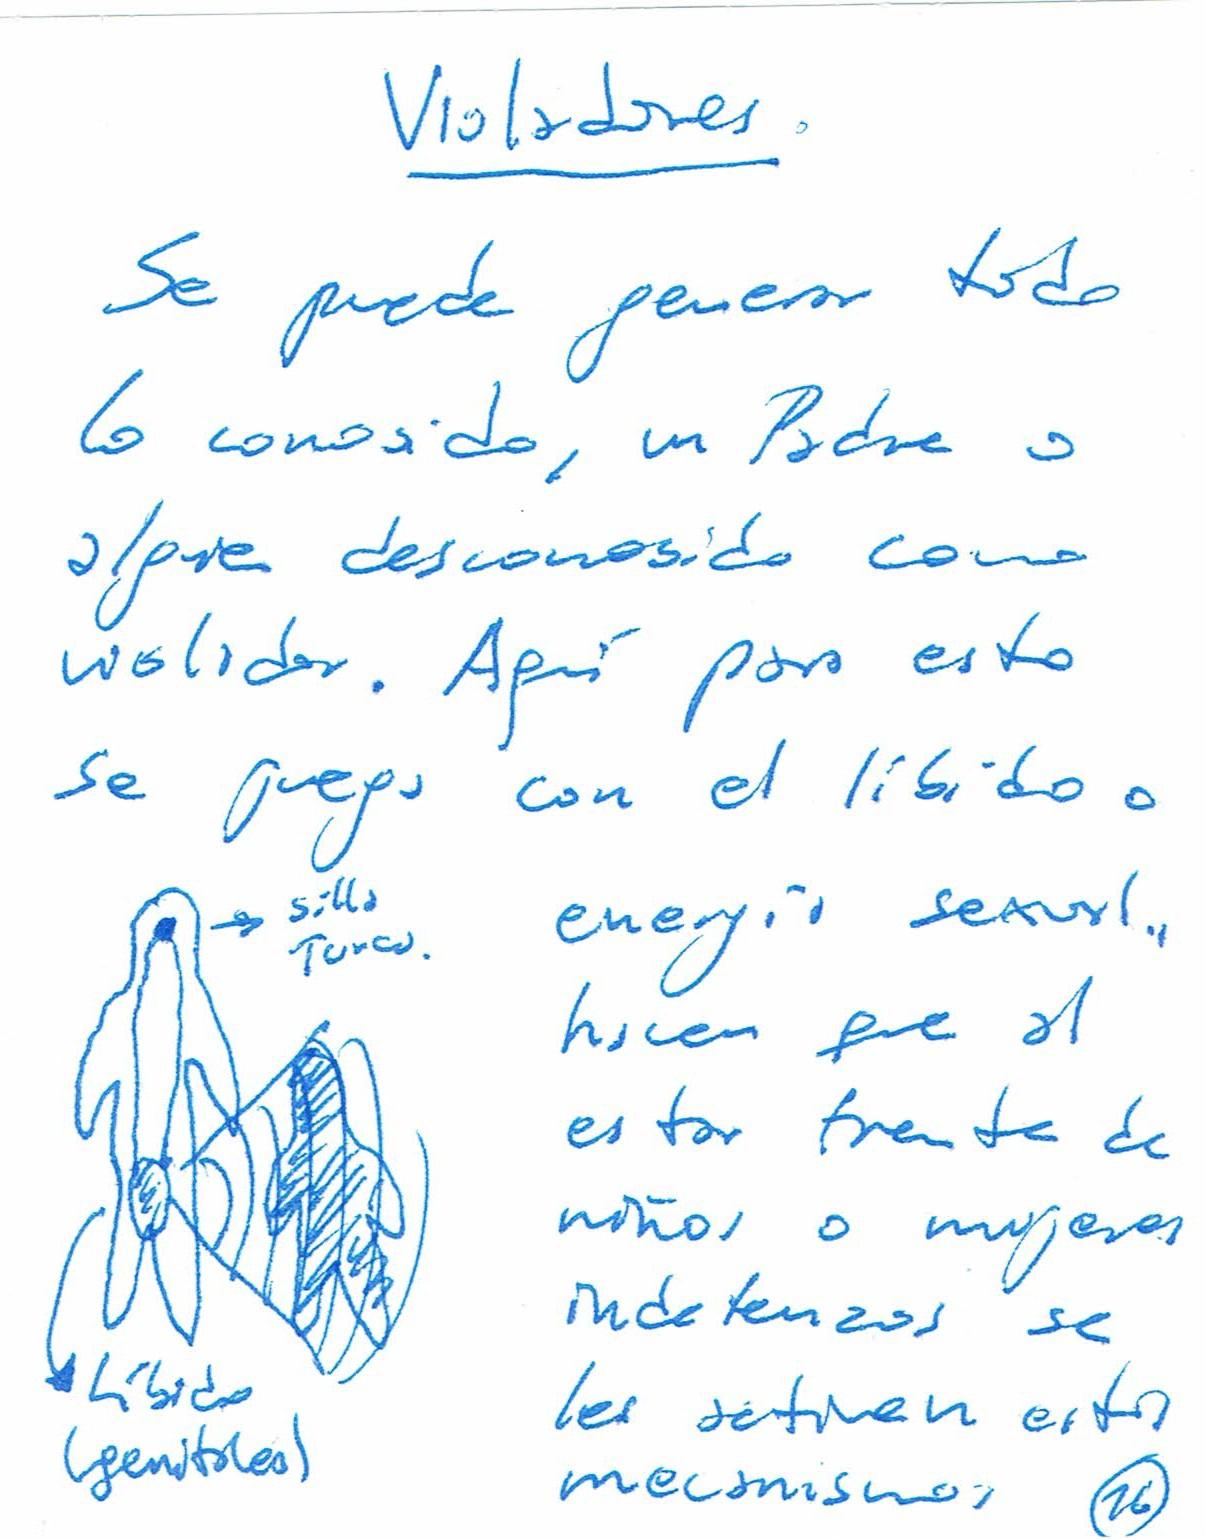 Violadores.
Se puede generar todo
lo conosido, un Padre o
alguien desconosido como
violador. Aquí para esto
se juega con el líbido o
energía sexual,,
hacen que al
estar frente de
niños o mujeres
indefenzos se
les activen estos
mecanismos
silla
Turca.
Líbido
(genitales)
26